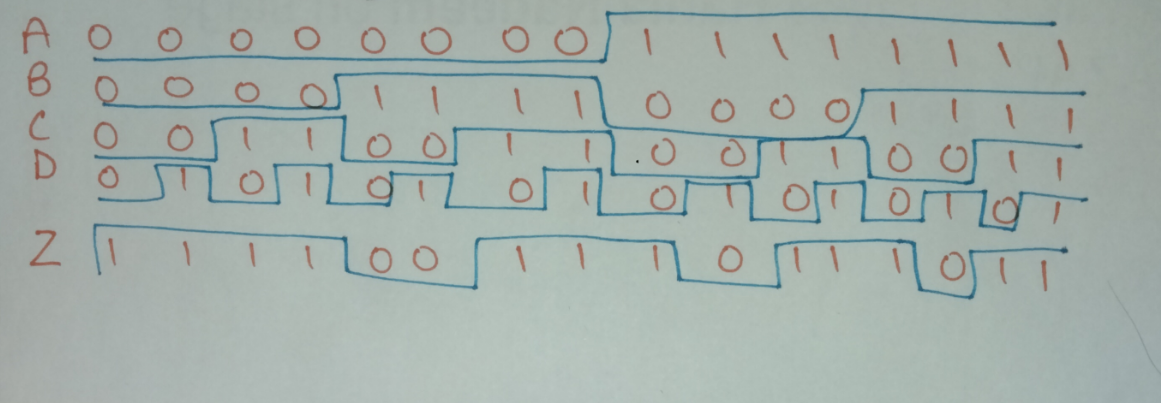 A 0 0 0 0 0 0 0 0 1 1 1 1 1 1 1 1
B 0 0 0 0 1 1 1 1 0 0 0 0 1 1 1 1
C 0 0 1 1 0 0 1 1 0 0 1 1 0 0 1 1
D 0 1 0 1 0 1 0 1 0 1 0 1 0 1 0 1
Z 1 1 1 1 0 0 1 1 1 0 1 1 1 0 1 1